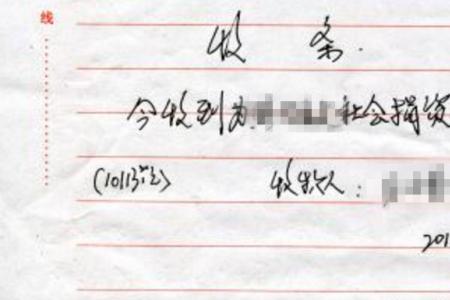 线
收条
今收到为社会捐资
收款人：
201